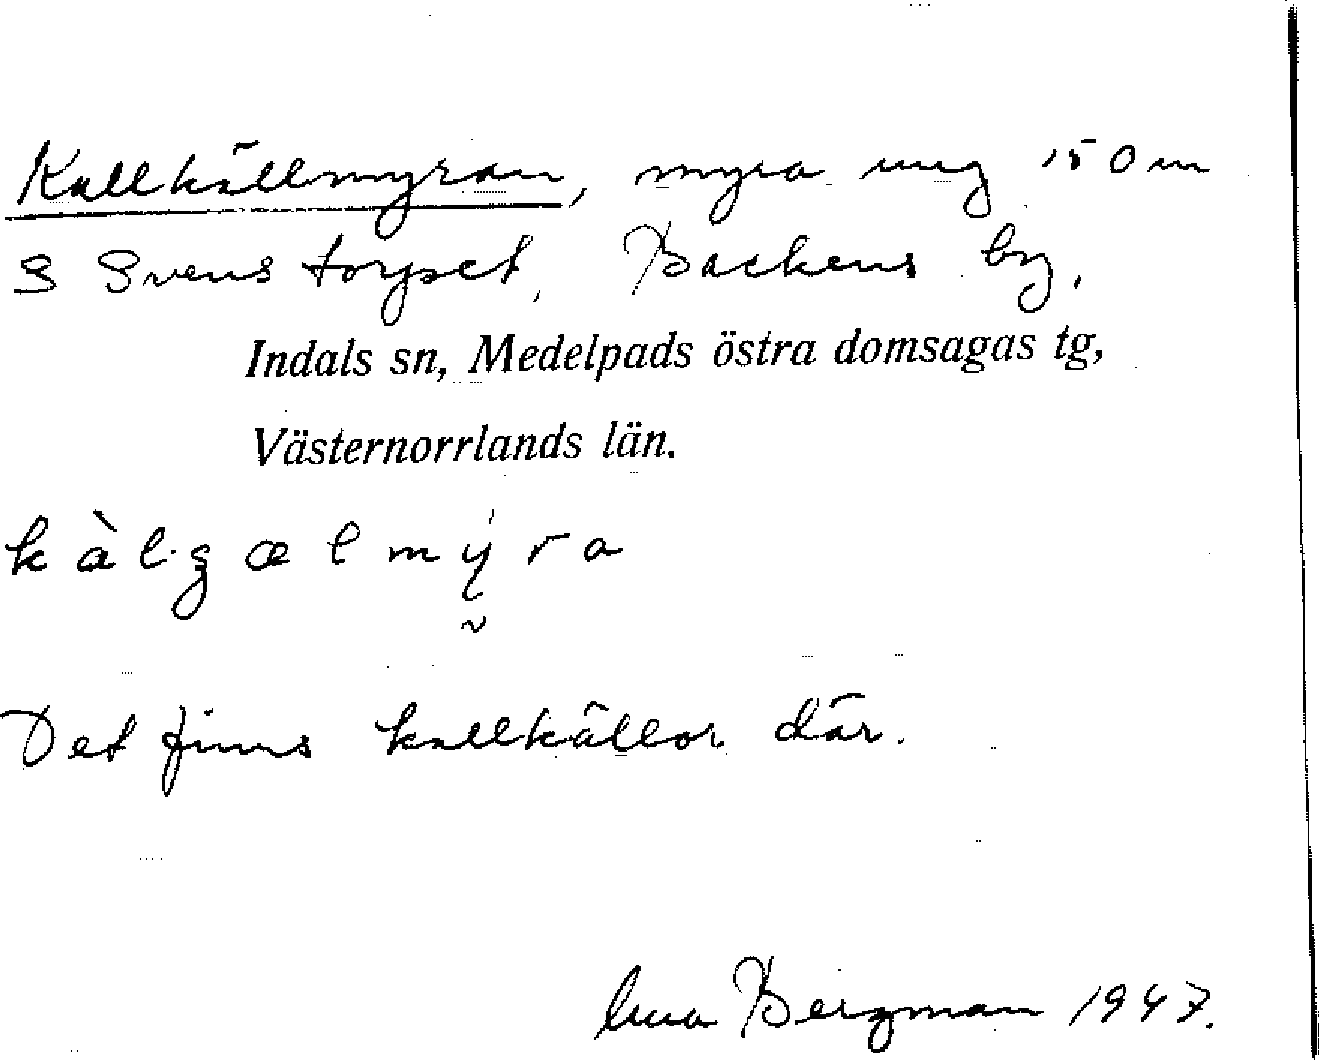 Kallkällmyran, myra ung 150 m
S Svenstorpet, Backens by,
Indals sn, Medelpads östra domsagas tg,
Västernorrlands län.
Det finns kallkällor där.
Bergman 1947.